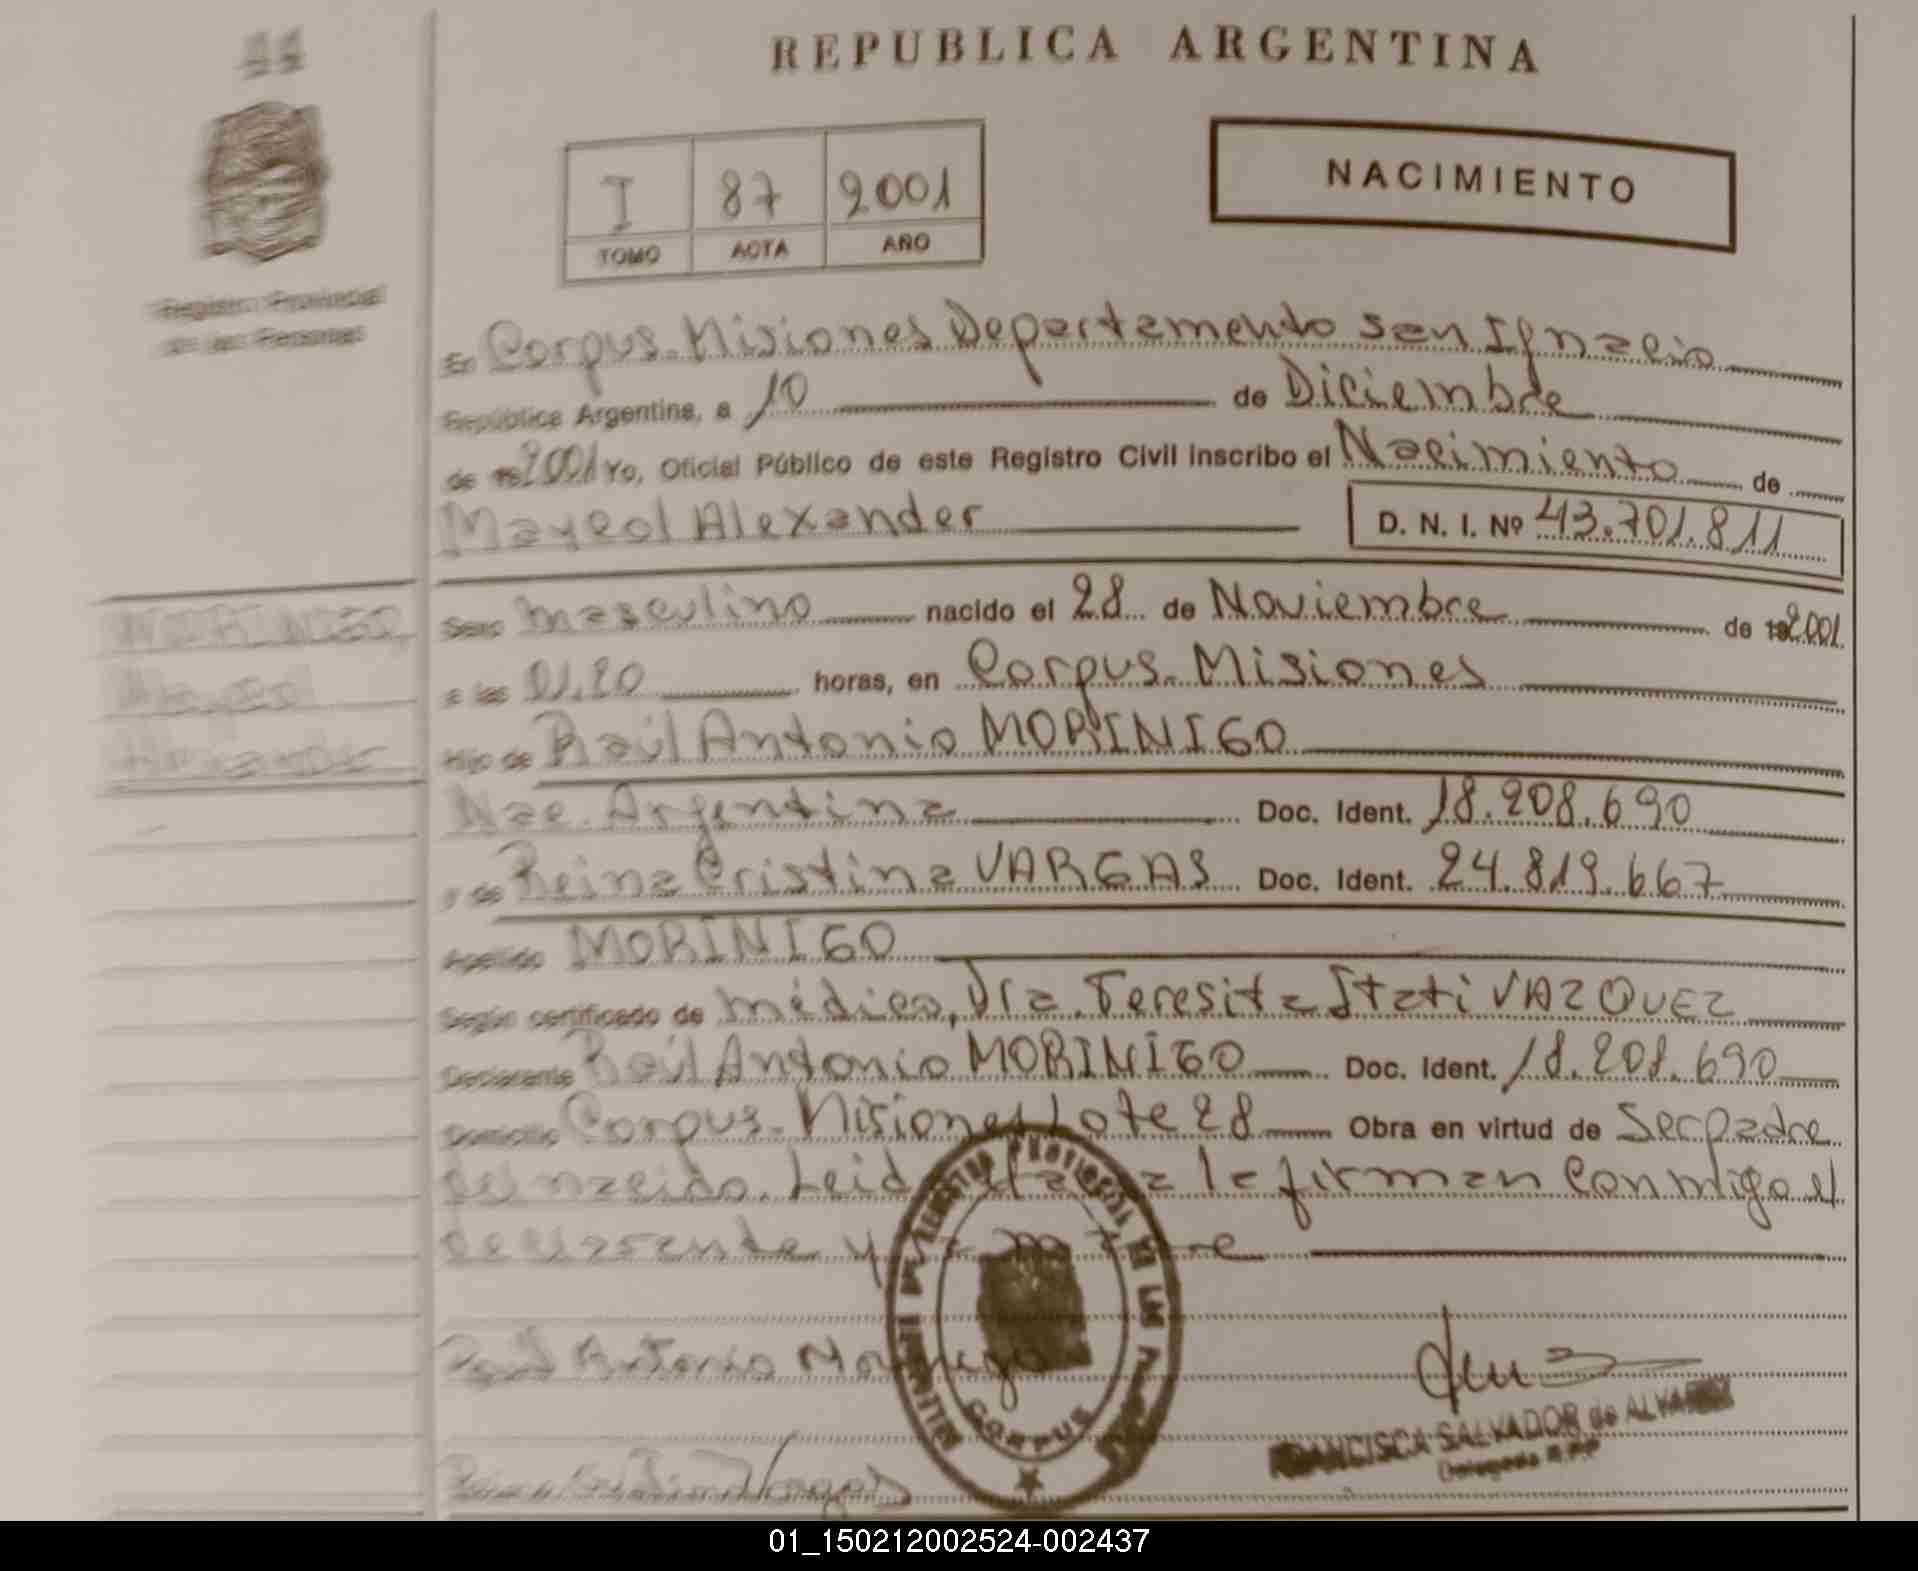 11
REPUBLICA ARGENTINA
I 87 2001
TOMO ACTA AÑO
NACIMIENTO
Registro Provincial
de las Personas
En Corpus. Misiones Departamento San Ignacio
República Argentina, a 10 de Diciembre
de 2001 Yo, Oficial Público de este Registro Civil inscribo el Nacimiento de
Maycol Alexander D. N. I. Nº 43.701.811
MORINIGO
Maycol
Alexander
Sexo masculino nacido el 28 de Noviembre de 2001
a las 01.20 horas, en Corpus. Misiones
Hijo de Raúl Antonio MORINIGO
Nac. Argentina Doc. Ident. 18.208.690
y de Reina Cristina VARGAS Doc. Ident. 24.819.667
Apellido MORINIGO
Según certificado de médico, Dra. Teresita Itati VAZQUEZ
Declarante Raúl Antonio MORINIGO Doc. Ident. 18.208.690
Domicilio Corpus. Misiones Lote 28 Obra en virtud de Ser padre
del nacido. Leida acta la firman conmigo el
declarante y la madre
Raul Antonio Morinigo
REGISTRO PROVINCIAL DE LAS
CORPUS
FRANCISCA SALVADOR de ALVAREZ
Delegada R.P.P
Reina Cristina Vargas
01_150212002524-002437